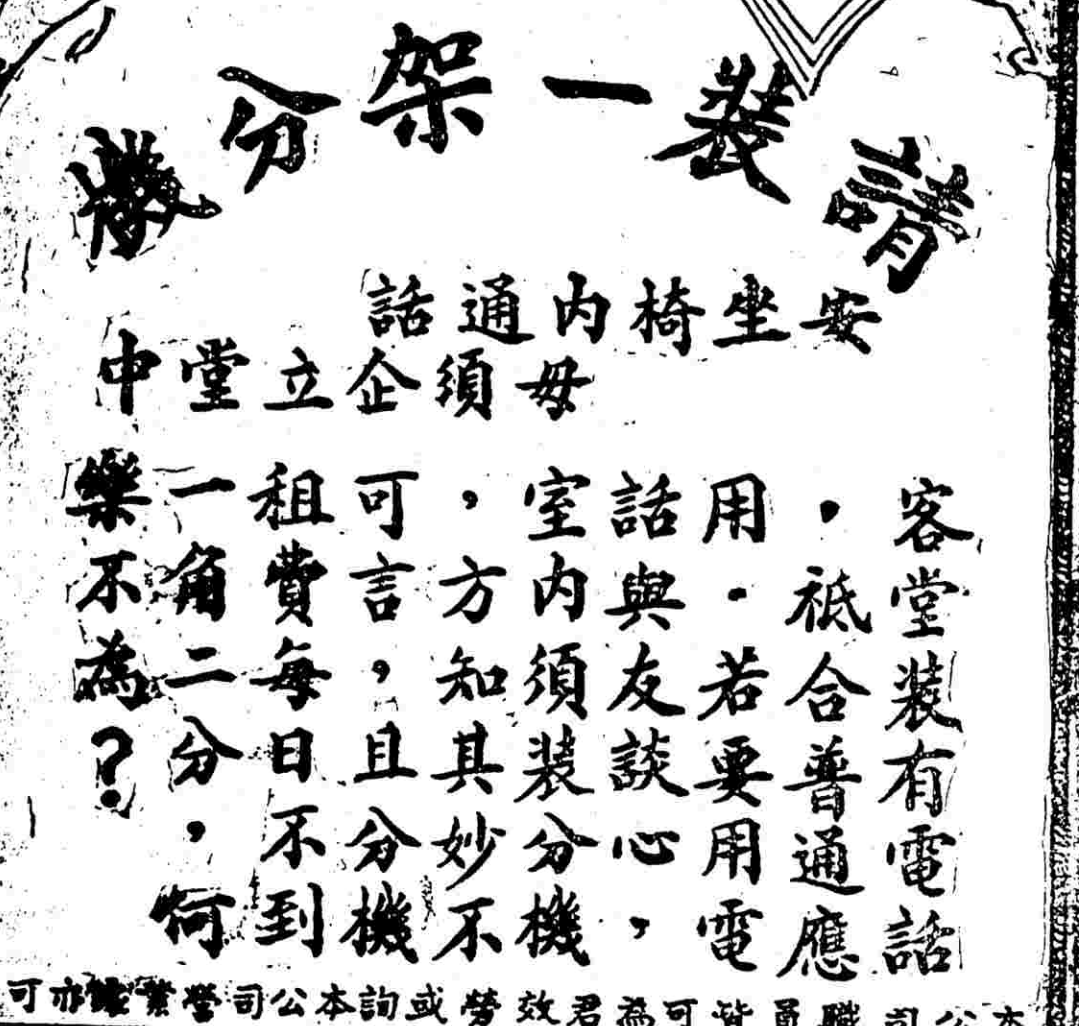 請裝一架分機
安坐椅內通話
毋須企立堂中
客堂裝有電話
，祗合普通應
用．若要用電
話與友談心，
室內須裝分機
，方知其妙不
可言，且分機
租費每日不到
一角二分，何
樂不為？
本公司職員皆可為君效勞或詢本公司營業處亦可